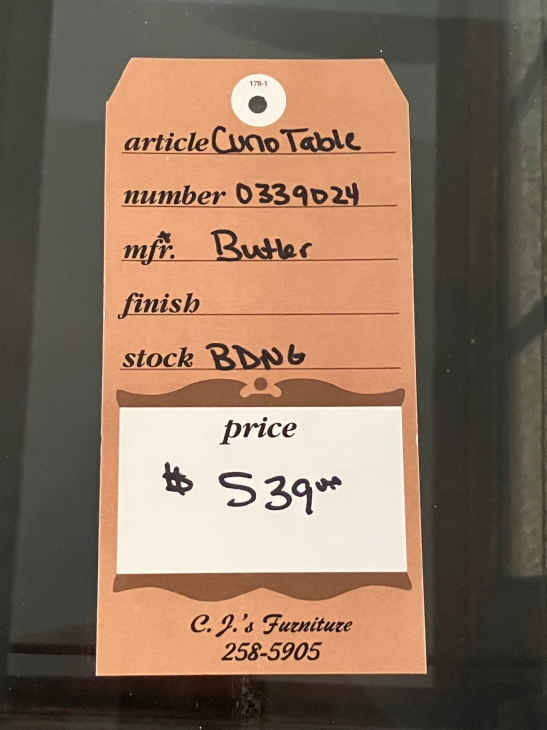 178-1
article Curio Table
number 0339024
mfr. Butler
finish
stock BDNG
price
$ 539⁰⁰
C. J.'s Furniture
258-5905